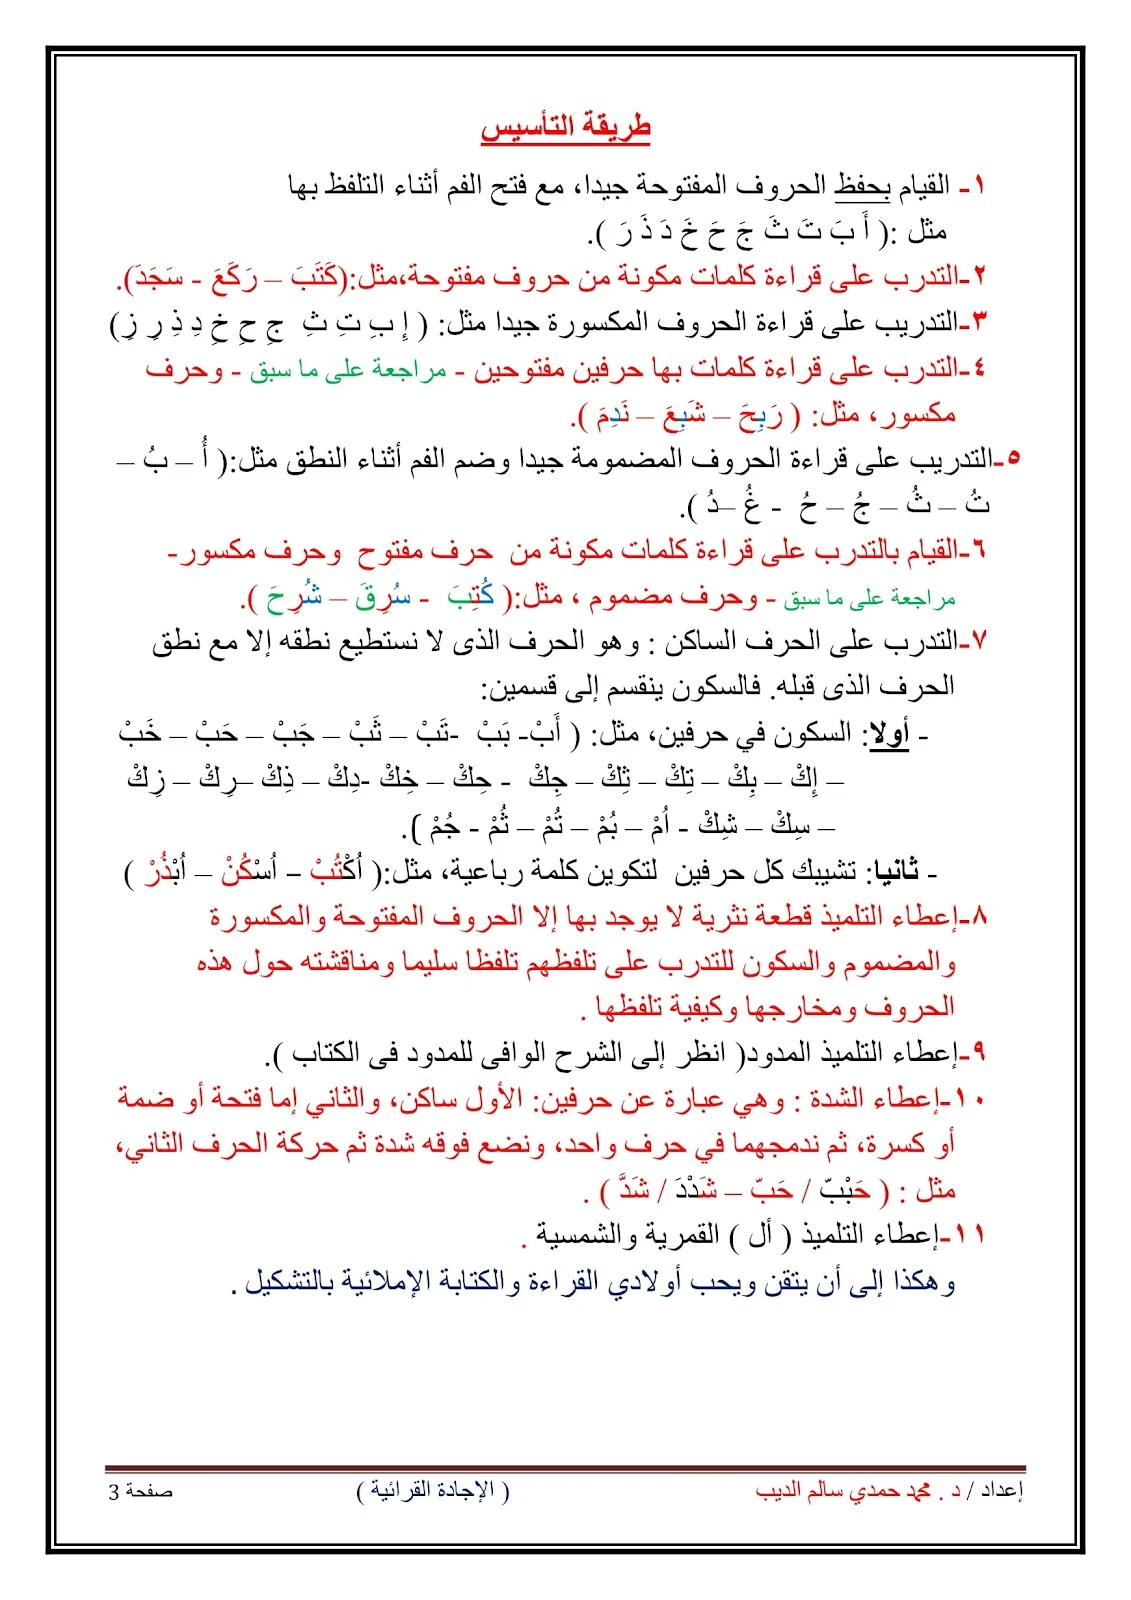 طريقة التأسيس
١- القيام بحفظ الحروف المفتوحة جيدا، مع فتح الفم أثناء التلفظ بها
مثل :( أَ بَ تَ ثَ جَ حَ خَ دَ ذَ رَ ).
٢-التدرب على قراءة كلمات مكونة من حروف مفتوحة،مثل:(كَتَبَ – رَكَعَ - سَجَدَ).
٣-التدريب على قراءة الحروف المكسورة جيدا مثل: ( إِ بِ تِ ثِ جِ حِ خِ دِ ذِ رِ زِ)
٤-التدرب على قراءة كلمات بها حرفين مفتوحين - مراجعة على ما سبق - وحرف
مكسور، مثل: ( رَبِحَ – شَبِعَ – نَدِمَ ).
٥-التدريب على قراءة الحروف المضمومة جيدا وضم الفم أثناء النطق مثل:( أُ – بُ –
تُ – ثُ – جُ – حُ - غُ –دُ ).
٦-القيام بالتدرب على قراءة كلمات مكونة من حرف مفتوح وحرف مكسور-
مراجعة على ما سبق - وحرف مضموم ، مثل:( كُتِبَ - سُرِقَ – شُرِحَ ).
٧-التدرب على الحرف الساكن : وهو الحرف الذى لا نستطيع نطقه إلا مع نطق
الحرف الذى قبله. فالسكون ينقسم إلى قسمين:
- أولا: السكون في حرفين، مثل: ( أَبْ- بَبْ -تَبْ – ثَبْ – جَبْ – حَبْ – خَبْ
– إِكْ – بِكْ – تِكْ – ثِكْ – جِكْ - حِكْ – خِكْ -دِكْ – ذِكْ –رِكْ – زِكْ
– سِكْ – شِكْ - اُمْ – بُمْ – تُمْ – ثُمْ - جُمْ ).
- ثانيا: تشبيك كل حرفين لتكوين كلمة رباعية، مثل:( اُكْتُبْ – اُسْكُنْ – اُبْذُرْ )
٨-إعطاء التلميذ قطعة نثرية لا يوجد بها إلا الحروف المفتوحة والمكسورة
والمضموم والسكون للتدرب على تلفظهم تلفظا سليما ومناقشته حول هذه
الحروف ومخارجها وكيفية تلفظها .
٩-إعطاء التلميذ المدود( انظر إلى الشرح الوافى للمدود فى الكتاب ).
١٠-إعطاء الشدة : وهي عبارة عن حرفين: الأول ساكن، والثاني إما فتحة أو ضمة
أو كسرة، ثم ندمجهما في حرف واحد، ونضع فوقه شدة ثم حركة الحرف الثاني،
مثل : ( حَبْبّ / حَبّ – شَدْدَ / شَدَّ ) .
١١-إعطاء التلميذ ( أل ) القمرية والشمسية .
وهكذا إلى أن يتقن ويحب أولادي القراءة والكتابة الإملائية بالتشكيل .
إعداد / د . محمد حمدي سالم الديب ( الإجادة القرائية ) صفحة 3